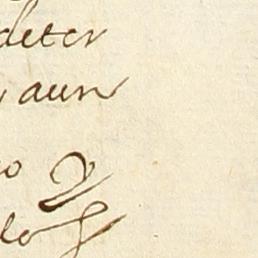 deter
aun
o y
los